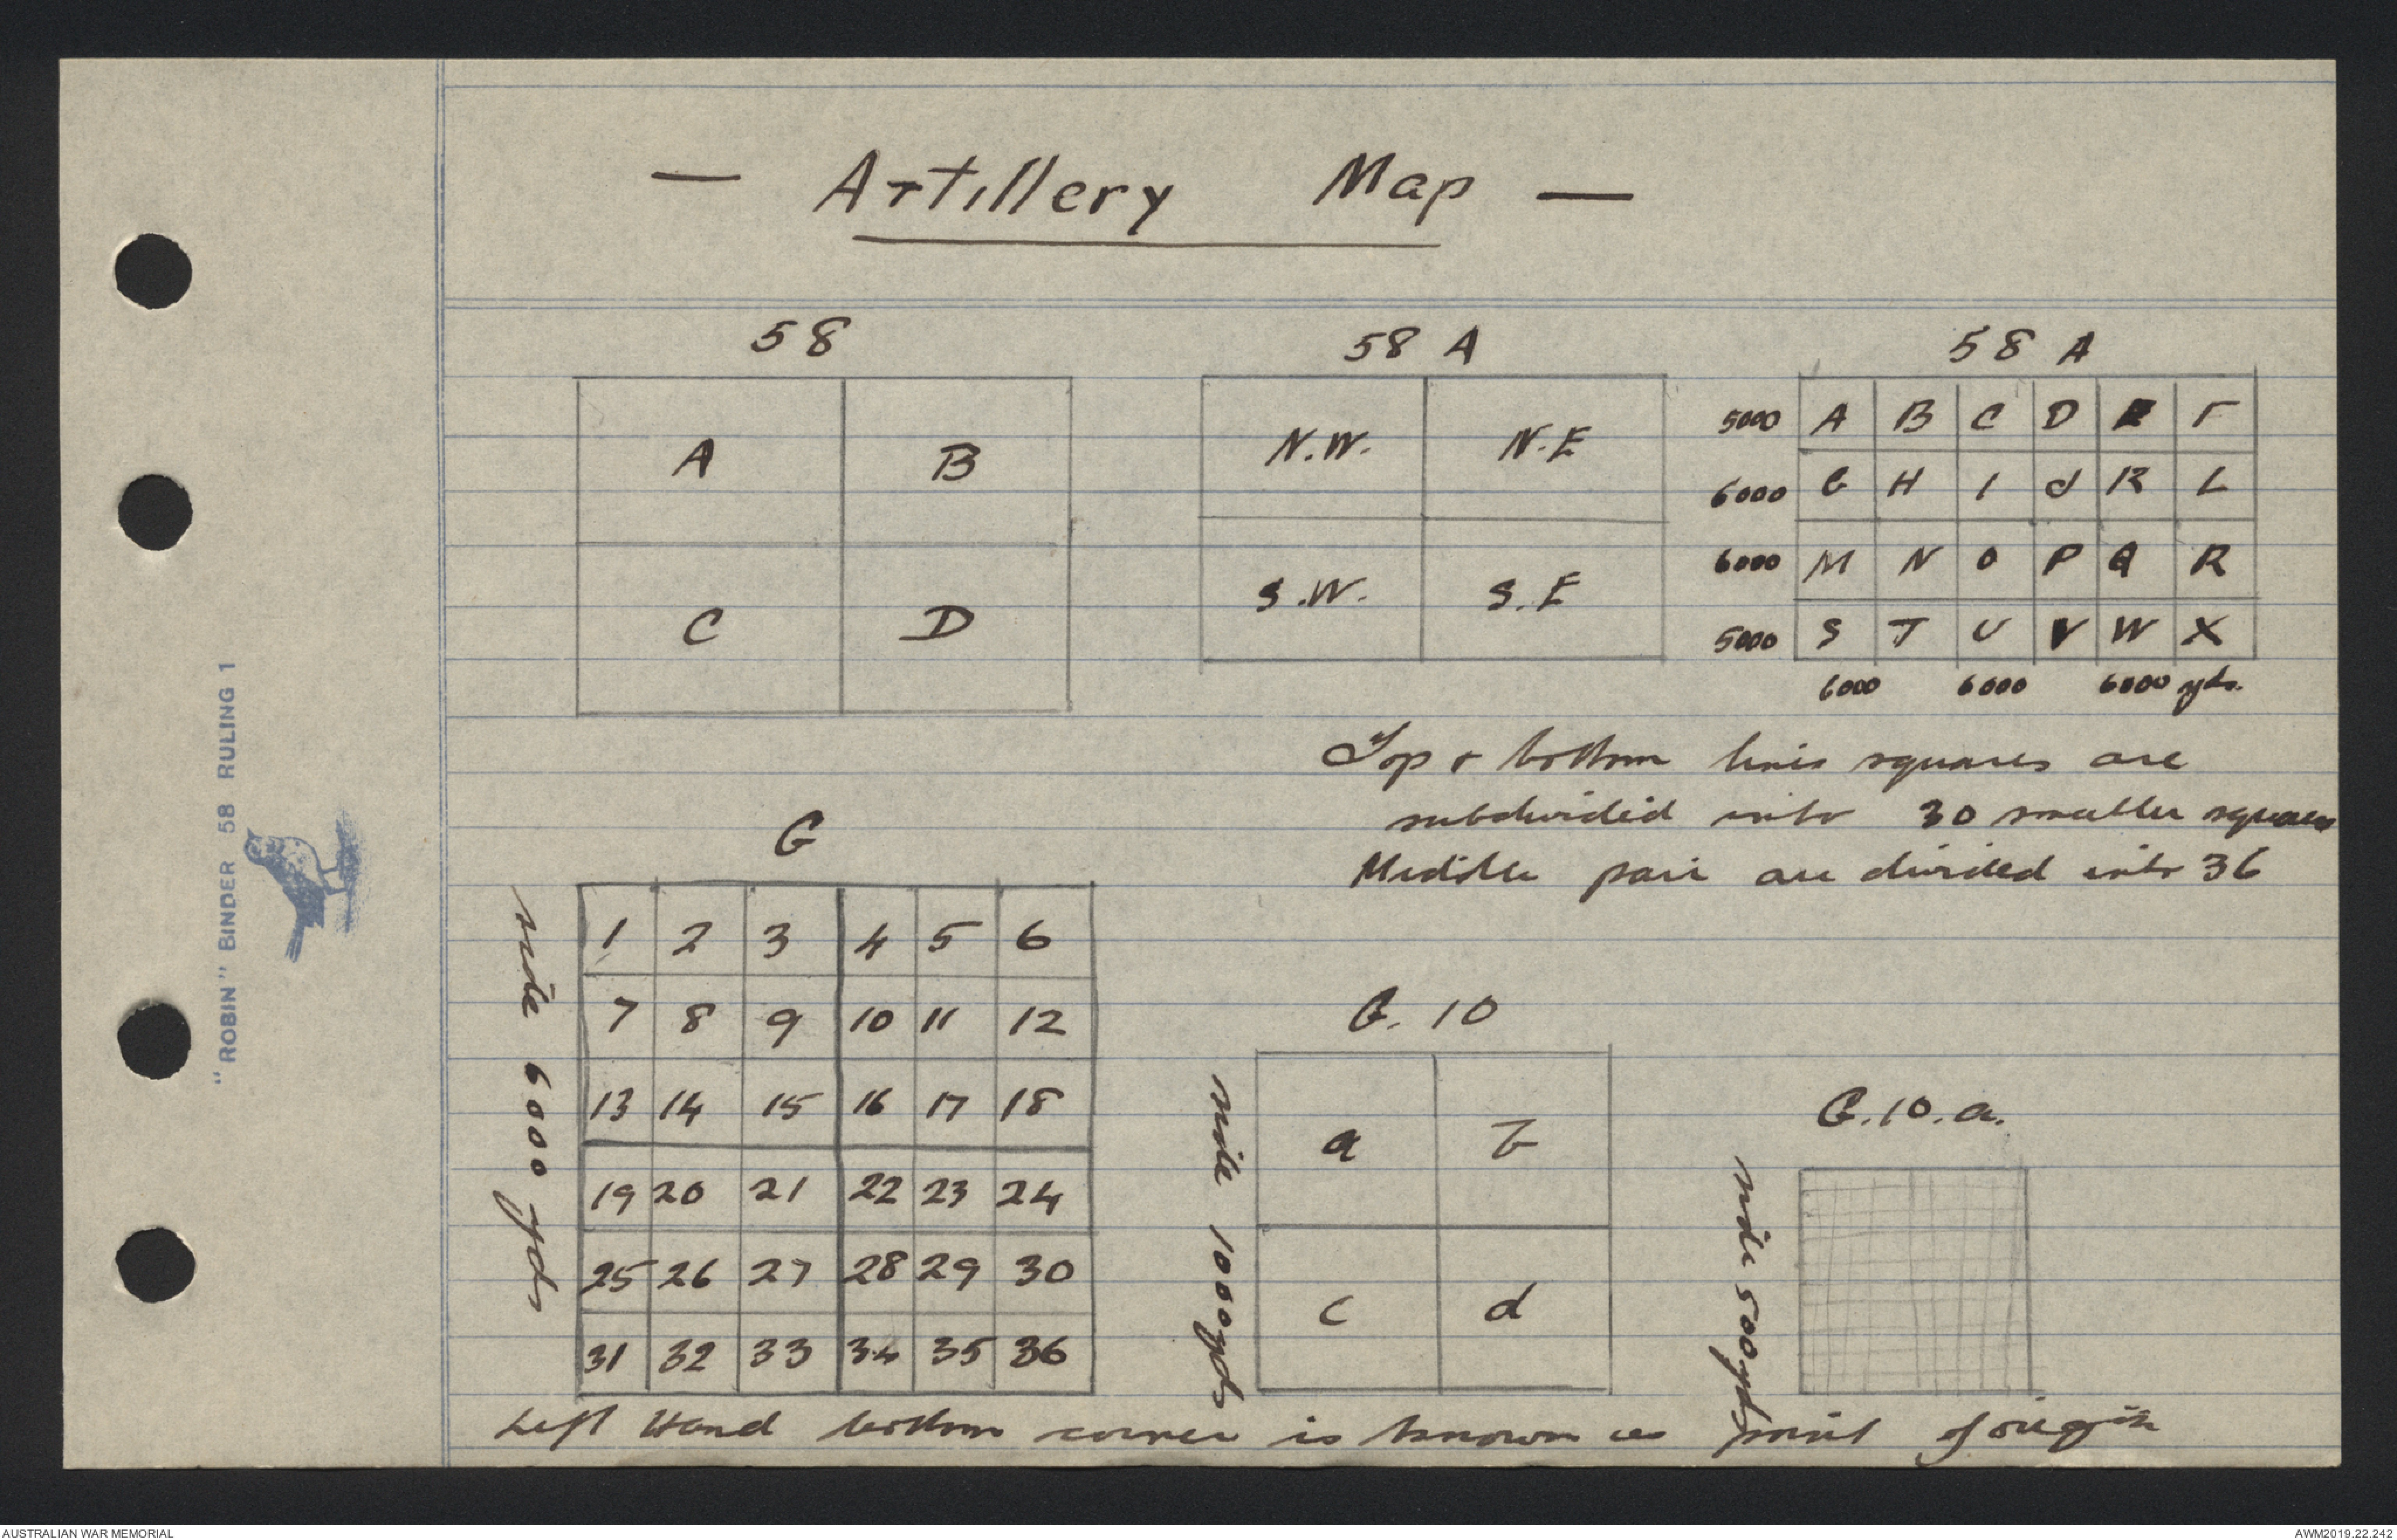 — Artillery Map —
58
A B
C D
58 A
N.W. N.E
S.W. S.E
58 A
5000 A B C D E F
6000 G H I J K L
6000 M N O P Q R
5000 S T U V W X
6000 6000 6000 yds.
Top & bottom lines squares are
subdivided into 30 smaller squares
Middle pair are divided into 36
G
side 6000 yds
1 2 3 4 5 6
7 8 9 10 11 12
13 14 15 16 17 18
19 20 21 22 23 24
25 26 27 28 29 30
31 32 33 34 35 36
G. 10
side 1000 yds
a b
c d
G.10.a.
side 500 yds
Left Hand bottom corner is known as point of origin
"ROBIN" BINDER 58 RULING 1
AUSTRALIAN WAR MEMORIAL
AWM2019.22.242